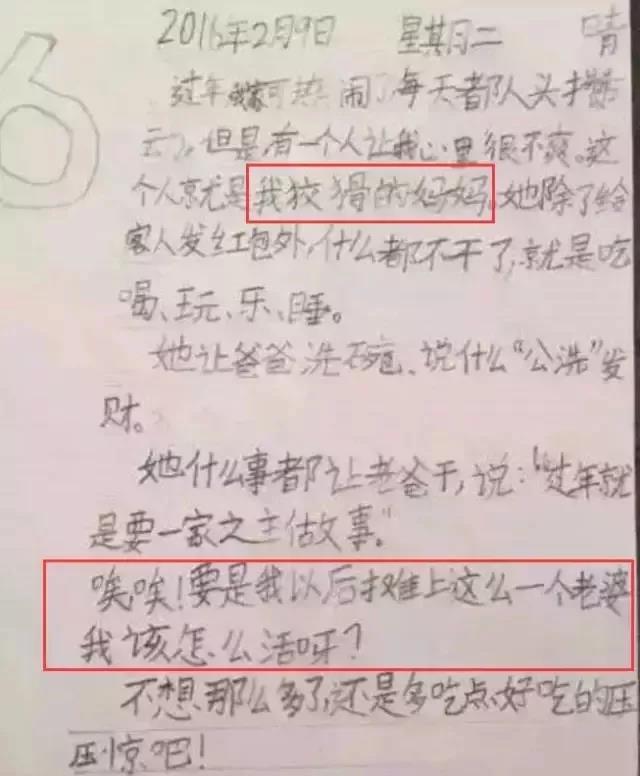 2016年2月9日 星期二 晴
过年家可热闹了每天都队头挤
云了,但是,有一个人让我心里很不爽。这
个人就是我狡猾的妈妈,她除了给
客人发红包外,什么都不干了,就是吃
喝、玩、乐、睡。
她让爸爸洗碗、说什么“公洗”发
财。
她什么事都让老爸干,说:“过年就
是要一家之主做故事。”
唉唉!要是我以后摊上这么一个老婆
我该怎么活呀?
不想那么多了,还是多吃点好吃的压
压惊吧!